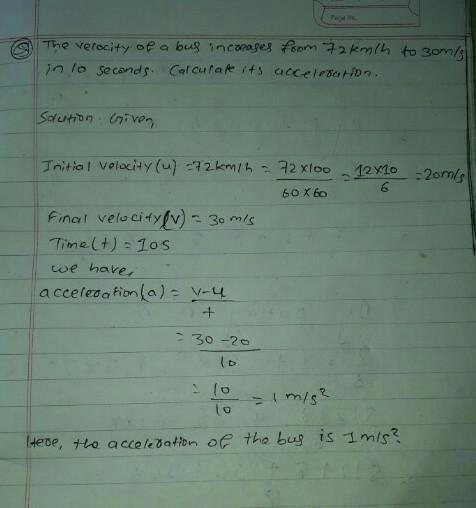 Page No.
Q The velocity of a bus increases from 72 km/h to 30 m/s
in 10 seconds. Calculate its acceleration.
Solution: Given,
Initial velocity (u) = 72 km/h = 72 x 100 / 60 x 60 = 12 x 10 / 6 = 20 m/s
Final velocity (v) = 30 m/s
Time (t) = 10s
we have,
acceleration (a) = v-u / t
= 30 - 20 / 10
= 10 / 10 = 1 m/s²
Here, the acceleration of the bus is 1 m/s².